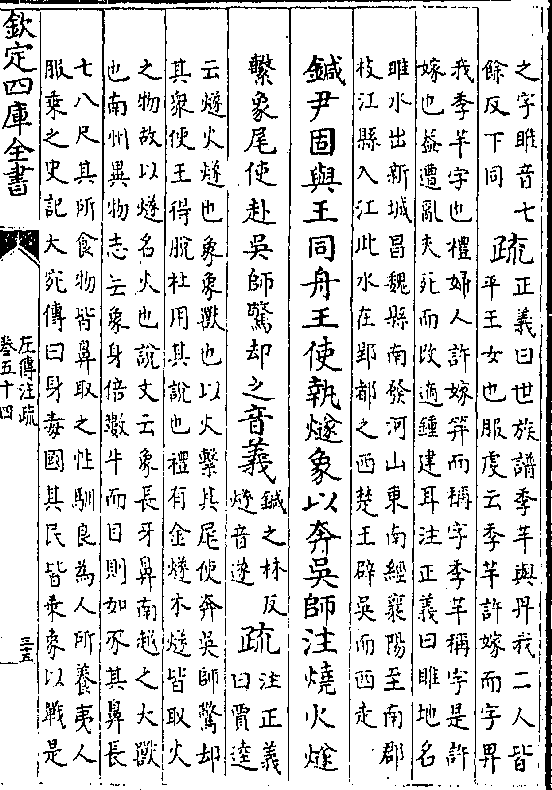 之字雎音七
餘反下同
疏
正義曰世族譜季芊與畀我二人皆
平王女也服虔云季芊許嫁而字畀
我季芊字也禮婦人許嫁筓而稱字季芊稱字是許
嫁也葢遭亂夫死而改適鍾建耳注正義曰雎地名
雎水出新城昌魏縣南發河山東南經襄陽至南郡
枝江縣入江此水在郢都之西楚王辟吳而西走
鍼尹固與王同舟王使執燧象以奔吳師注燒火燧
繫象尾使赴吳師驚却之音義
鍼之林反
燧音遂
疏
注正義
曰賈逵
云燧火燧也象象獸也以火繫其尾使奔吳師驚却
其衆使王得脫杜用其說也禮有金燧木燧皆取火
之物故以燧名火也說文云象長牙鼻南越之大獸
也南州異物志云象身倍數牛而目則如豕其鼻長
七八尺其所食物皆鼻取之性馴良為人所養夷人
服乗之史記大宛傳曰身毒國其民皆乗象以戰是
欽定四庫全書
左傳注疏
卷五十四
三十五